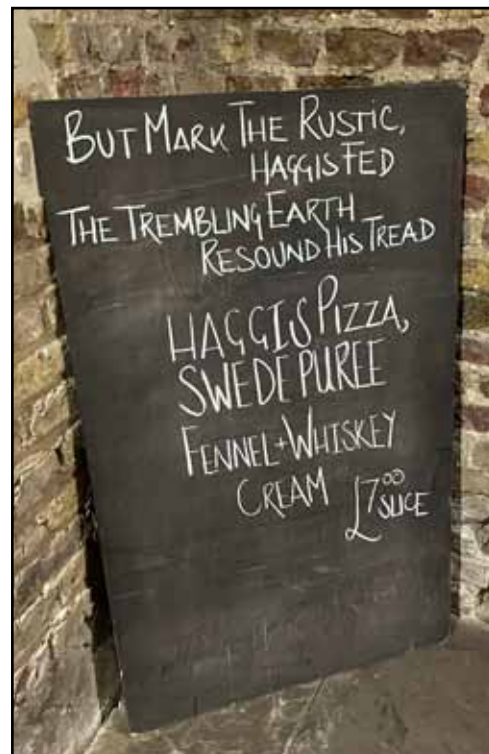 BUT MARK THE RUSTIC,
HAGGIS FED
THE TREMBLING EARTH
RESOUND HIS TREAD
HAGGIS PIZZA,
SWEDE PUREE
FENNEL + WHISKEY
CREAM £7.00 SLICE